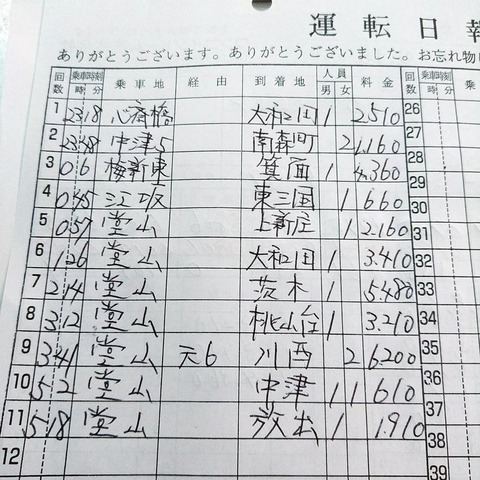 運転日報
ありがとうございます。ありがとうございました。お忘れ物
回数 乗車時刻 時 分 乗車地 経由 到着地 人員 男 女 料金 乗車時刻 時 分
1 23 18 心斎橋 大和田 1 2510 26
2 23 48 中津5 南森町 2 1,160 27
3 0 6 梅新東 箕面 1 4,360 28
4 0 45 江坂 東三国 1 660 29
5 0 57 堂山 上新庄 1 2160 31
6 1 26 堂山 大和田 1 3.410 32
7 2 14 堂山 茨木 1 5.480 33
8 3 12 堂山 桃山台 1 3.210 34
9 3 41 堂山 元6 川西 2 6200 35
10 5 2 堂山 中津 1 1 610 36
11 5 18 堂山 放出 1 1.910 37
12 38
39